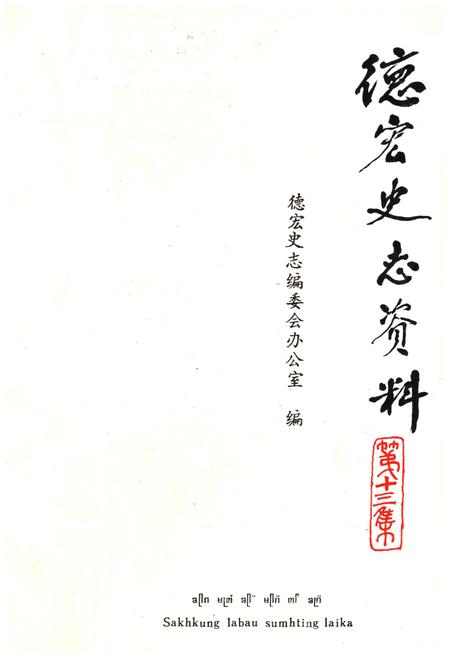 德宏史志资料
第十三集
德宏史志编委会办公室 编
Sakhkung labau sumhting laika